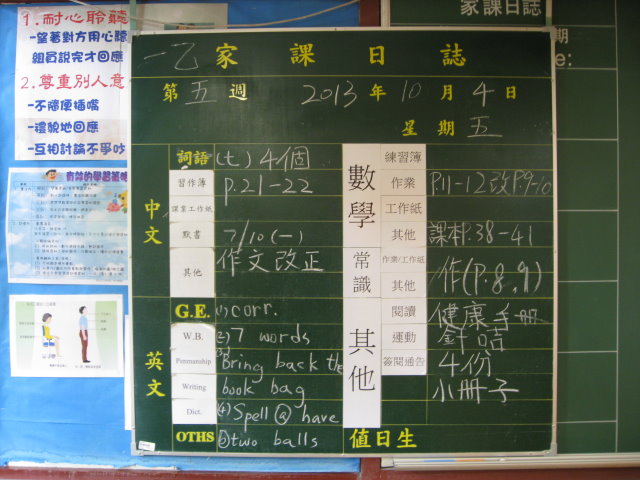 1.耐心聆聽
-望著對方用心聽
組員說完才回應
2.尊重別人意
-不隨便插嘴
-禮貌地回應
-互相討論不爭吵
有效的學習策略
家課日誌
期
e:
一乙家課日誌
第五週 2013年10月4日
星期五
中文
詞語 (七)4個
習作簿 P.21-22
課業工作紙
默書 7/10(一)
其他 作文改正
英文
G.E. (1)corr.
W.B. (2)7 words
Penmanship (3)Bring back the
Writing book bag
Dict. (4)Spell@have
OTHS (5)two balls
數學
練習簿
作業 P.11-12改P.9-10
工作紙
其他 課本P.38-41
常識
作業/工作紙 作(P.8,9)
其他
其他
閱讀 健康手冊
運動
簽閱通告 4份
小冊子
值日生